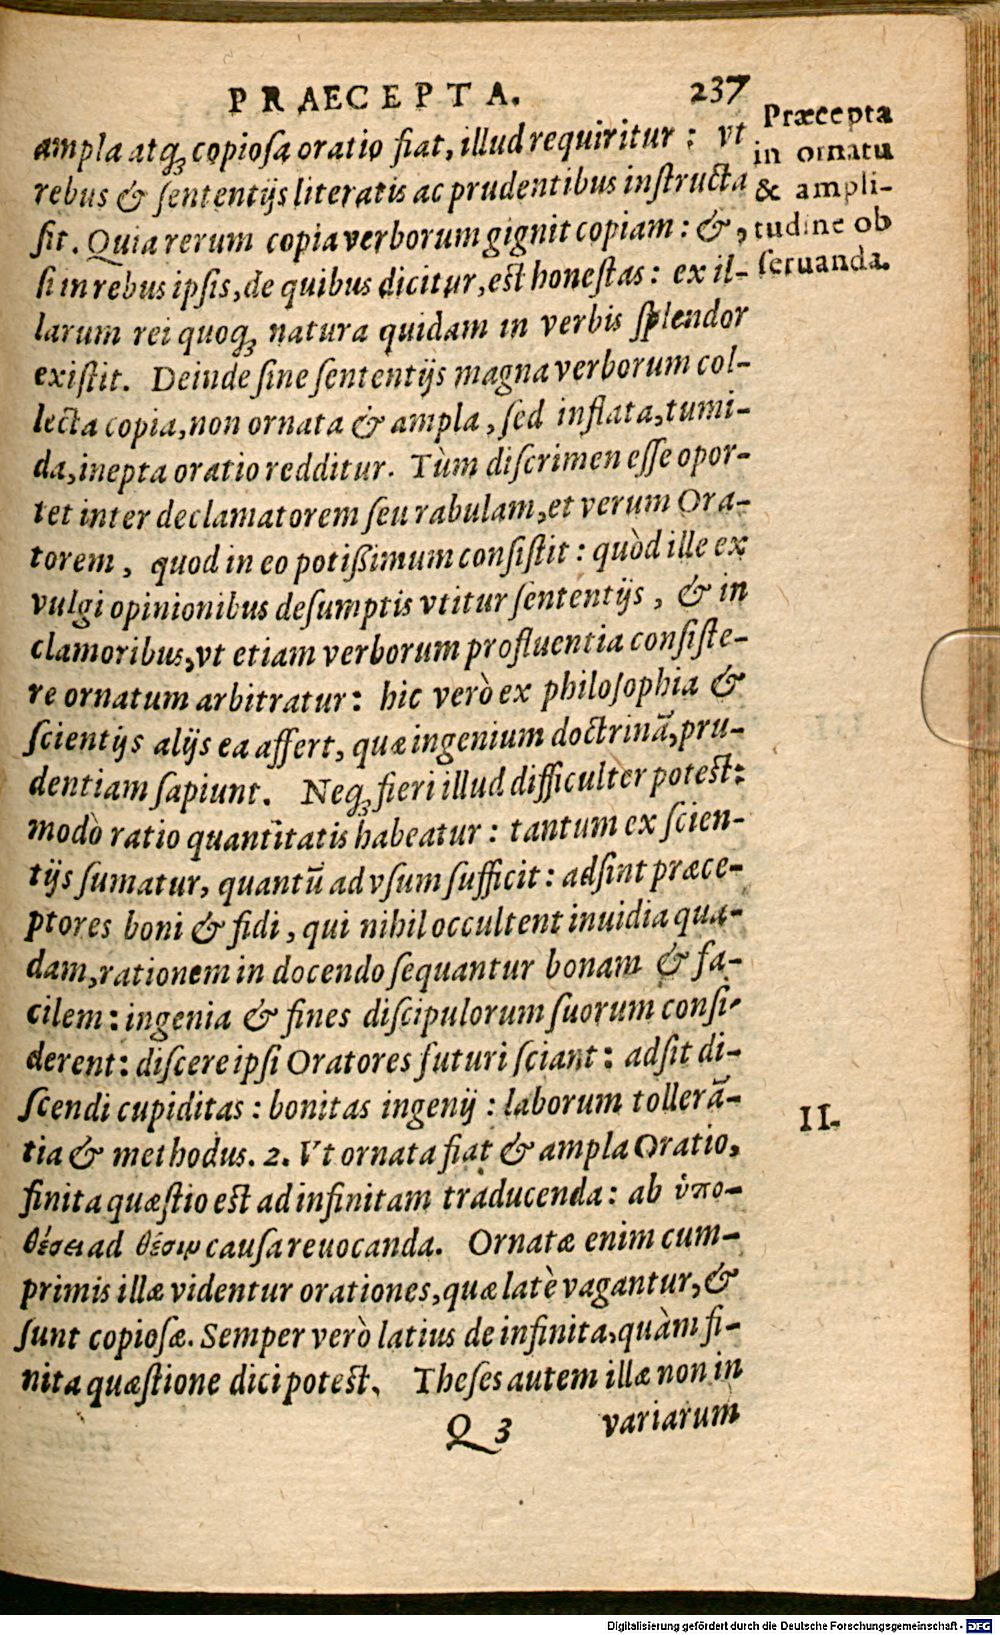 PRAECEPTA. 237
Præcepta
in ornatu
& ampli-
tudine ob
seruanda.
ampla atq́; copiosa oratio fiat, illud requiritur: vt
rebus & sententijs literatis ac prudentibus instructa
sit. Quia rerum copia verborum gignit copiam: &,
si in rebus ipsis, de quibus dicitur, est honestas: ex il-
larum rei quoq́; natura quidam in verbis splendor
existit. Deinde sine sententijs magna verborum col-
lecta copia, non ornata & ampla, sed inflata, tumi-
da, inepta oratio redditur. Tùm discrimen esse opor-
tet inter declamatorem seu rabulam, et verum Ora-
torem, quod in eo potißimum consistit: quòd ille ex
vulgi opinionibus desumptis vtitur sententijs, & in
clamoribus, vt etiam verborum profluentia consiste-
re ornatum arbitratur: hic verò ex philosophia &
scientijs alijs ea affert, quæ ingenium doctrinā, pru-
dentiam sapiunt. Neq́; fieri illud difficulter potest:
modò ratio quantitatis habeatur: tantum ex scien-
tijs sumatur, quantū ad vsum sufficit: adsint præce-
ptores boni & fidi, qui nihil occultent inuidia qua-
dam, rationem in docendo sequantur bonam & fa-
cilem: ingenia & fines discipulorum suorum consi-
derent: discere ipsi Oratores futuri sciant: adsit di-
scendi cupiditas: bonitas ingenij: laborum tollerā-
tia & methodus. 2. Vt ornata fiat & ampla Oratio,
II.
finita quæstio est ad infinitam traducenda: ab ὑπο-
θέσει ad θέσιν causa reuocanda. Ornatæ enim cum-
primis illæ videntur orationes, quæ latè vagantur, &
sunt copiosæ. Semper verò latius de infinita, quàm fi-
nita quæstione dici potest. Theses autem illæ non in
Q 3 variarum
Digitalisierung gefördert durch die Deutsche Forschungsgemeinschaft - DFG